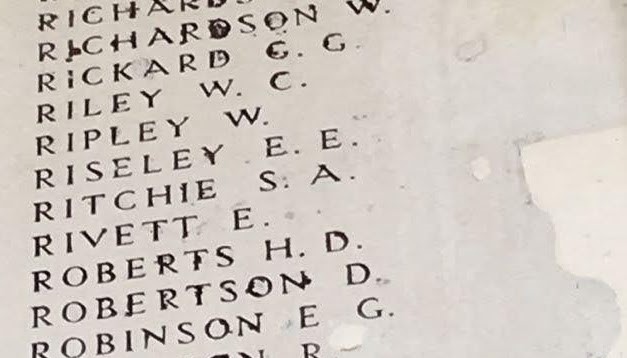 RICHARDSON W.
RICKARD G. G.
RILEY W. C.
RIPLEY W.
RISELEY E. E.
RITCHIE S. A.
RIVETT E.
ROBERTS H. D.
ROBERTSON D.
ROBINSON E G.
R